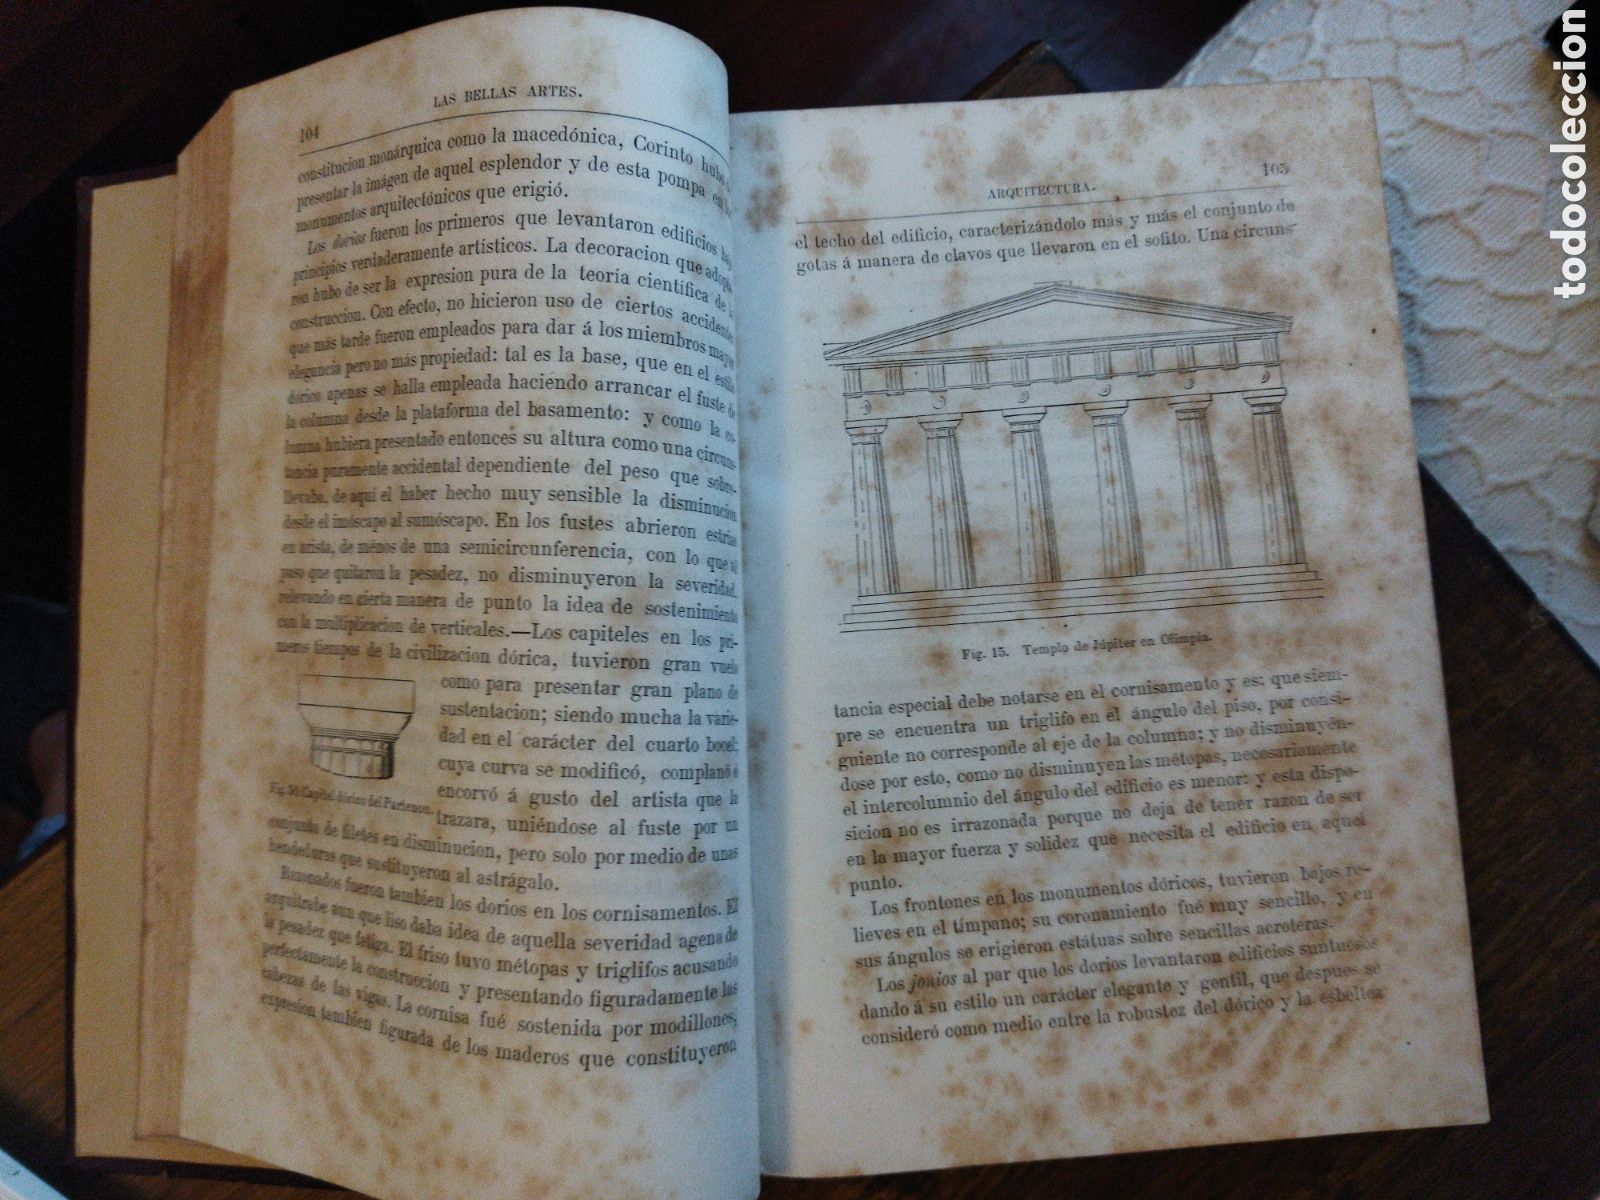 104
LAS BELLAS ARTES.
constitucion monárquica como la macedónica, Corinto hubo
presentar la imágen de aquel esplendor y de esta pompa en
monumentos arquitectónicos que erigió.
Los dorios fueron los primeros que levantaron edificios
principios verdaderamente artísticos. La decoracion que
ron hubo de ser la expresion pura de la teoría científica de
construccion. Con efecto, no hicieron uso de ciertos accidentes
que más tarde fueron empleados para dar á los miembros mayor
elegancia pero no más propiedad: tal es la base, que en el estilo
dórico apenas se halla empleada haciendo arrancar el fuste de
la columna desde la plataforma del basamento: y como la co-
lumna hubiera presentado entonces su altura como una circuns-
tancia puramente accidental dependiente del peso que sobre-
llevaba, de aquí el haber hecho muy sensible la disminucion
desde el imóscapo al sumóscapo. En los fustes abrieron estrias
en arista, de ménos de una semicircunferencia, con lo que al
paso que quitaron la pesadez, no disminuyeron la severidad,
relevando en cierta manera de punto la idea de sostenimiento
con la multiplicacion de verticales.—Los capiteles en los pri-
meros tiempos de la civilizacion dórica, tuvieron gran vuelo
como para presentar gran plano de
sustentacion; siendo mucha la varie-
dad en el carácter del cuarto bocel:
cuya curva se modificó, complanó é
encorvó á gusto del artista que la
trazara, uniéndose al fuste por un
Capitel dórico del Partenon.
conjunto de filetes en disminucion, pero solo por medio de unas
hendeduras que sustituyeron al astrágalo.
Razonados fueron tambien los dorios en los cornisamentos. El
arquitrabe aun que liso daba idea de aquella severidad agena de
la pesadez que fatiga. El friso tuvo métopas y triglifos acusando
perfectamente la construccion y presentando figuradamente las
cabezas de las vigas. La cornisa fué sostenida por modillones,
expresion tambien figurada de los maderos que constituyeron
ARQUITECTURA.
105
el techo del edificio, caracterizándolo más y más el conjunto de
gotas á manera de clavos que llevaron en el sofito. Una circuns-
Fig. 15. Templo de Júpiter en Olimpia.
tancia especial debe notarse en el cornisamento y es: que siem-
pre se encuentra un triglifo en el ángulo del piso, por consi-
guiente no corresponde al eje de la columna; y no disminuyén-
dose por esto, como no disminuyen las métopas, necesariamente
el intercolumnio del ángulo del edificio es menor: y esta dispo-
sicion no es irrazonada porque no deja de tener razon de ser
en la mayor fuerza y solidez que necesita el edificio en aquel
punto.
Los frontones en los monumentos dóricos, tuvieron bajos re-
lieves en el tímpano; su coronamiento fué muy sencillo, y en
sus ángulos se erigieron estátuas sobre sencillas acroteras.
Los jonios al par que los dorios levantaron edificios suntuosos
dando á su estilo un carácter elegante y gentil, que despues se
consideró como medio entre la robustez del dórico y la esbeltez
todocoleccion